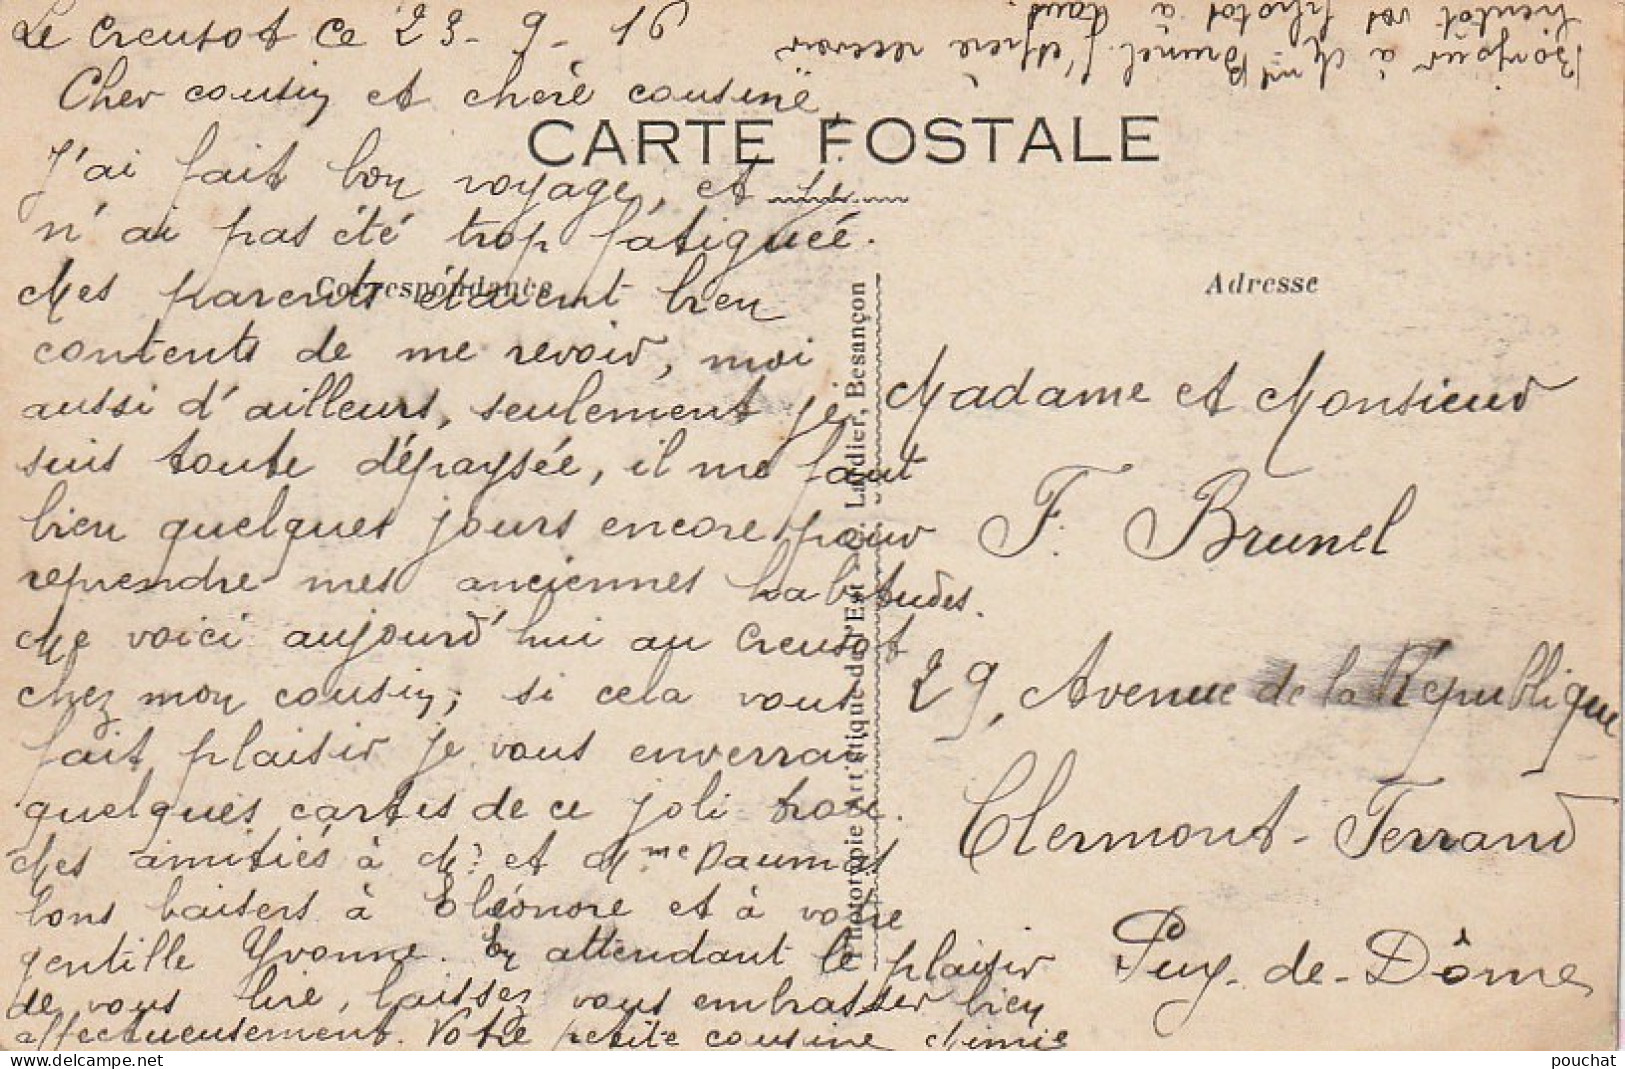 Le Creusot ce 23 - 9 - 16
Cher cousin et chère cousine,
J'ai fait bon voyage, et
n'ai pas été trop fatiguée.
Mes parents étaient bien
contents de me revoir, moi
aussi d'ailleurs, seulement je
suis toute dépaysée, il me faut
bien quelques jours encore pour
reprendre mes anciennes habitudes.
Me voici aujourd'hui au Creusot
chez mon cousin; si cela vous
fait plaisir je vous enverrai
quelques cartes de ce joli trou.
Mes amitiés à Mr et Mme Daumas
bons baisers à Eléonore et à votre
gentille Yvonne. En attendant le plaisir
de vous lire, laissez vous embrasser bien
affectueusement. Votre petite cousine Mimie
Bonjour à Mme Brunel. J'espère recevoir
bientôt vos photos à tous.
CARTE POSTALE
Correspondance
Adresse
Phototypie Artistique de l'Est Lardier, Besançon
Madame et Monsieur
F. Brunel
29, Avenue de la République
Clermont-Ferrand
Puy-de-Dôme
pouchat